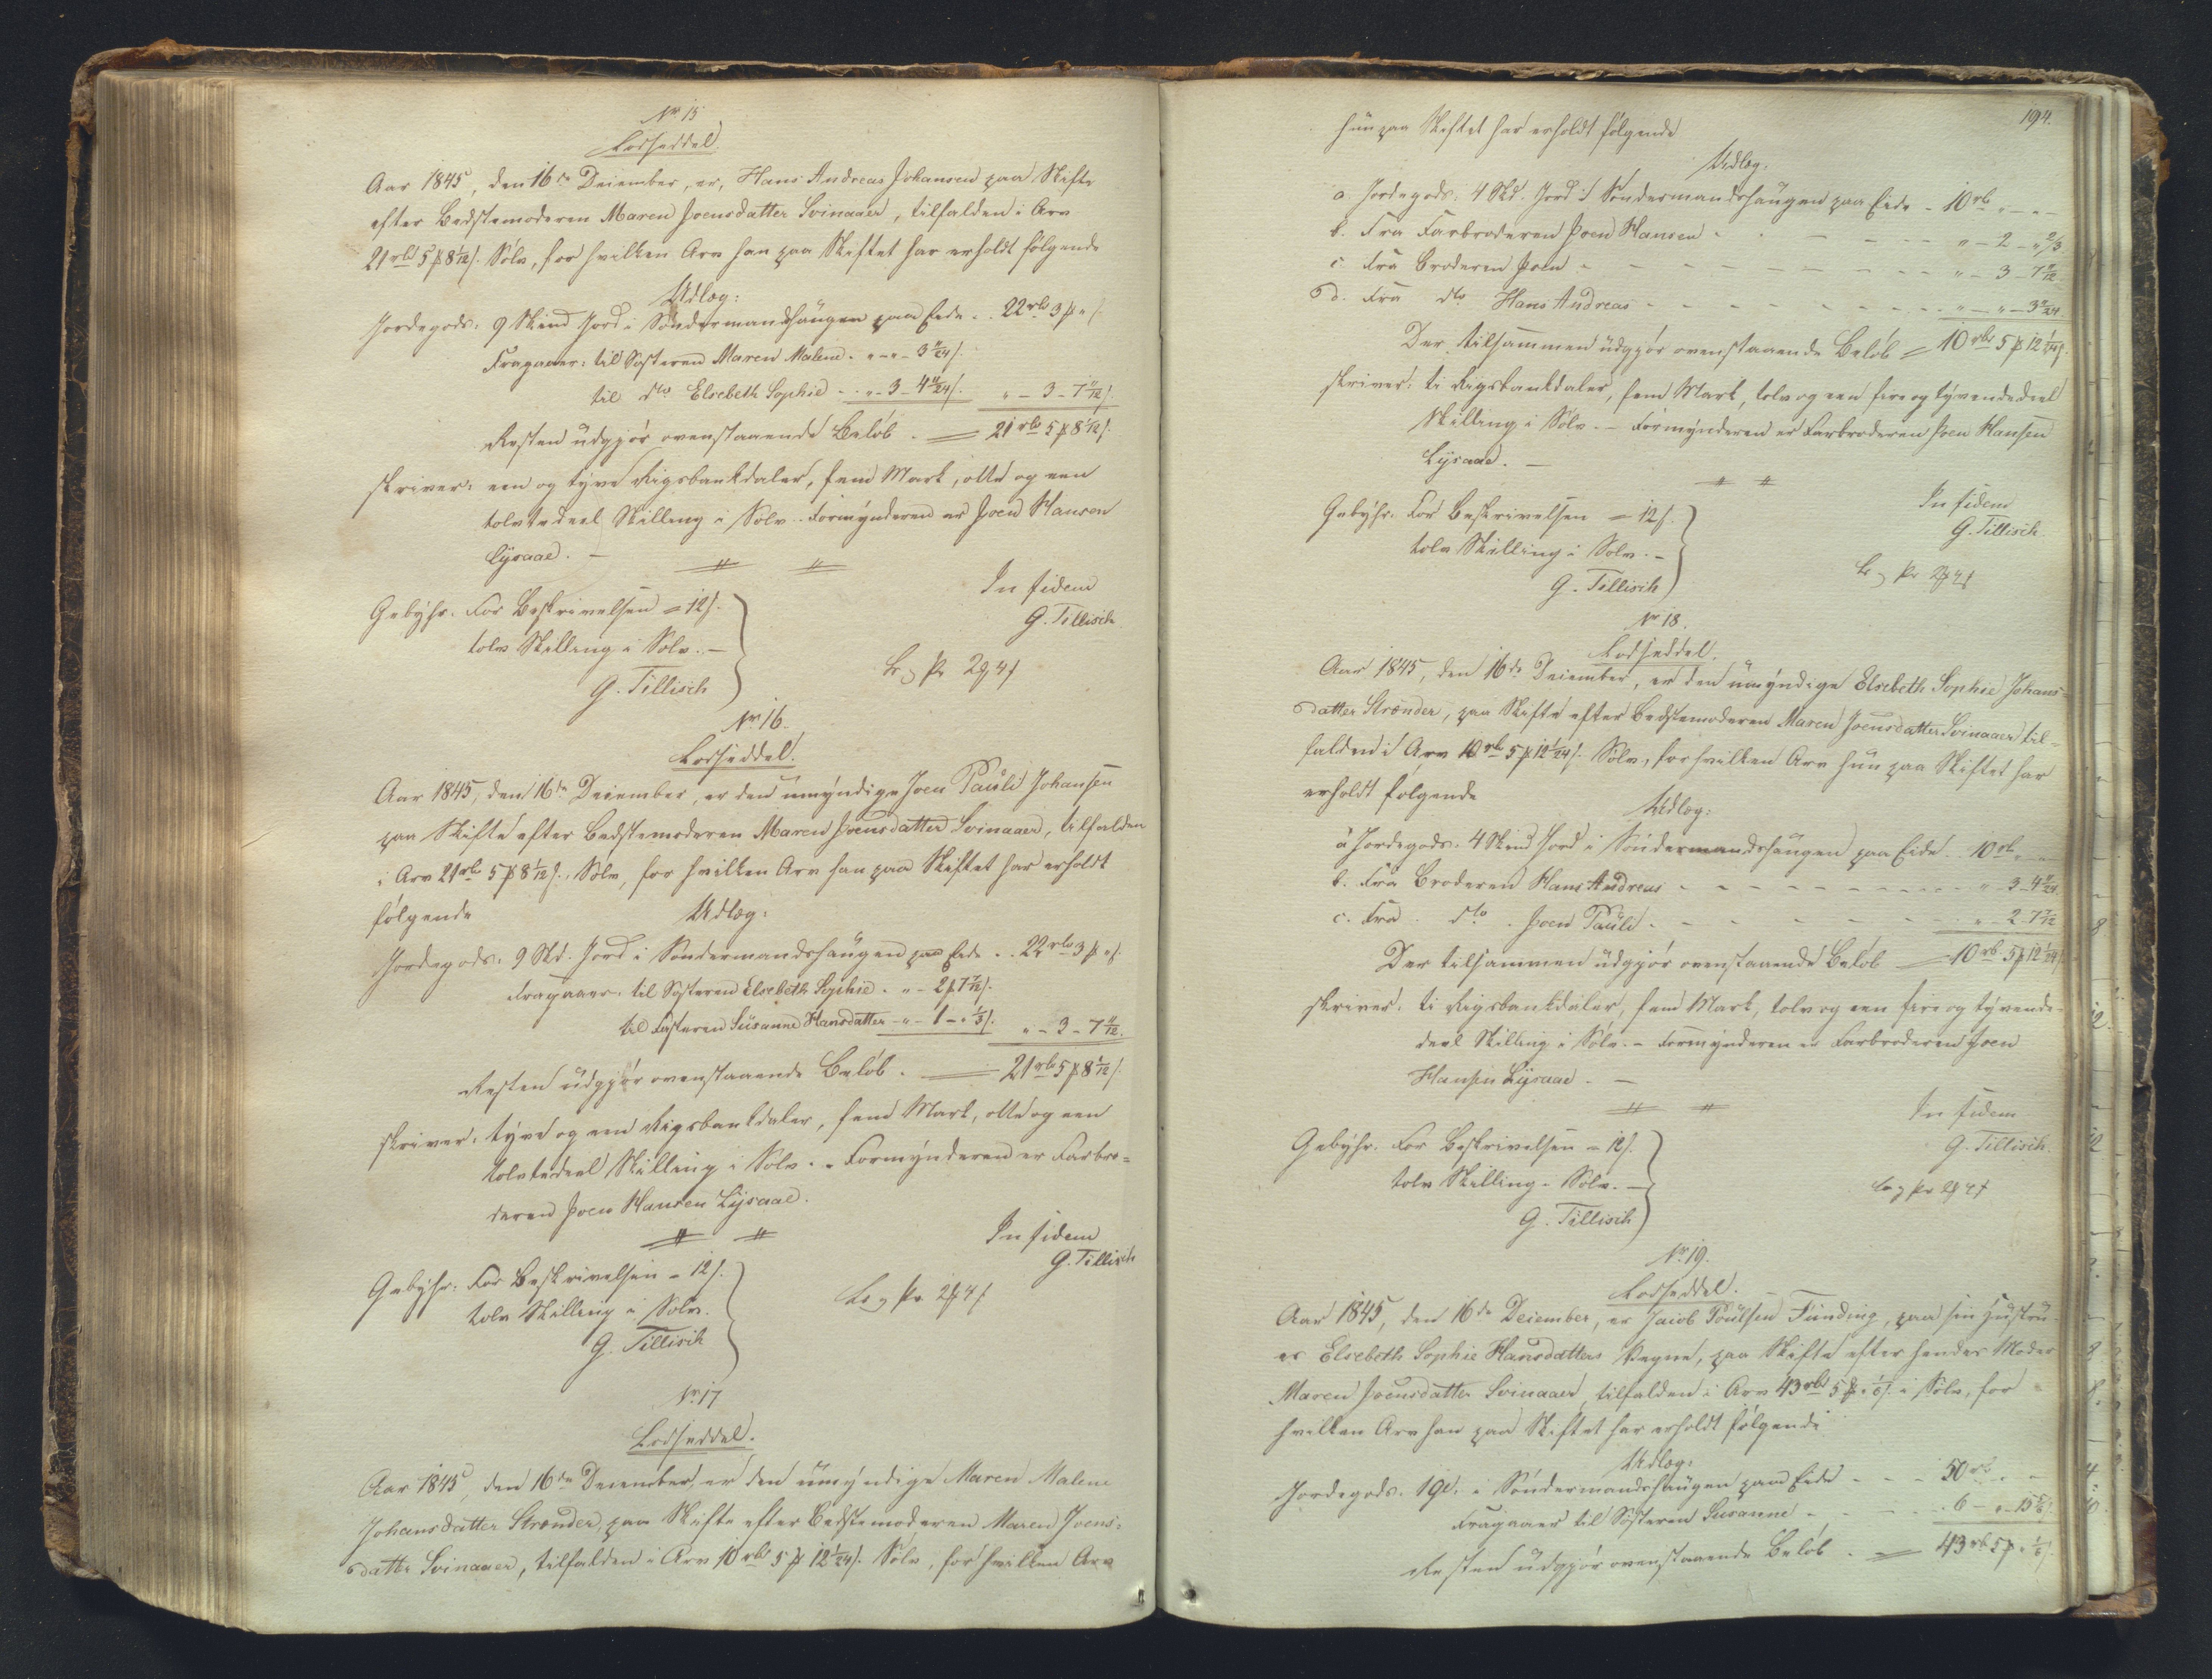 No 15
Lodseddel.
Aar 1845, den 16de December, er, Hans Andreas Johansen paa Skifte
efter Bedstemoderen Maren Joensdatter Svinaaer, tilfalden i Arv
21rbd 5 ℔ 8 1/12 s. Sölv, for hvilken Arv han paa Skiftet har erholdt fölgende
Udlæg:
Jordegods: 9 Skind Jord i Söndermandshaugen paa Eide . . 22rbd 3 ℔ " s.
Fragaaer: til Sösteren Maren Malene . " - " - 3 11/24 s.
til dto Elsebeth Sophie . . " - 3 - 4 11/24 s. " - 3 - 7 11/12 s.
Resten udgjör ovenstaaende Belöb . = 21rbd 5 ℔ 8 1/12 s.
skriver: een og tyve Rigsbankdaler, fem Mark, otte og een
tolvtedeel Skilling i Sölv. - Formynderen er Joen Hansen
Lysaae. -
Gebyhr. For Beskrivelsen = 12 s.
tolv Skilling i Sölv. -
G. Tillisch
In fidem
G. Tillisch
No 16.
Lodseddel.
Aar 1845, den 16de December, er den umyndige Joen Pauli Johansen
paa Skifte efter Bedstemoderen Maren Joensdatter Svinaaer, tilfalden
i Arv 21rbd 5 ℔ 8 1/12 s. Sölv, for hvilken Arv han paa Skiftet har erholdt
fölgende Udlæg:
Jordegods: 9 Skd. Jord i Söndermandshaugen paa Eide . . 22rbd 3 ℔ " s.
Fragaaer: til Sösteren Elsebeth Sophie . " - 2 ℔ 7 7/12 s.
til Fasteren Susanne Hansdatter - " - 1 - " 1/3 s. " - 3 - 7 11/12.
Resten udgjör ovenstaaende Belöb . = 21rbd 5 ℔ 8 1/12 s.
skriver: tyve og een Rigsbankdaler, fem Mark, otte og een
tolvtedeel Skilling i Sölv. - Formynderen er Farbro=
deren Joen Hansen Lysaae.
In fidem
G. Tillisch
Gebyhr: For Beskrivelsen = 12 s.
tolv Skilling i Sölv.
G. Tillisch
No 17
Lodseddel.
Aar 1845, den 16de December, er den umyndige Maren Malene
Johansdatter Strænder, paa Skifte efter Bedstemoderen Maren Joens=
datter Svinaaer, tilfalden i Arv 10rbd 5 ℔ 12 1/24 s. Sölv, for hvilken Arv
194.
hun paa Skiftet har erholdt fölgende
Udlæg.
a Jordegods: 4 Skd. Jord i Söndermandshaugen paa Eide - 10rb " - " -
b. Fra Farbroderen Joen Hansen - " - 2 - " 2/3
c. Fra Broderen Joen - " - 3 - 7 11/12
d. Fra dto Hans Andreas - " - " - 3 11/24
Der tilsammen udgjör ovenstaaende Belöb = 10rbd 5 ℔ 12 1/24 s.
skriver: ti Rigsbankdaler, fem Mark, tolv og een fire og tyvendedeel
Skilling i Sölv. - Formynderen er Farbroderen Joen Hansen
Lysaae. -
In fidem
G. Tillisch.
Gebyhr. For Beskrivelsen = 12 s.
tolv Skilling i Sölv. -
G. Tillisch
No 18.
Lodseddel.
Aar 1845, den 16de December, er den umyndige Elsebeth Sophie Johans=
datter Strænder, paa Skifte efter Bedstemoderen Maren Joensdatter Svinaaer til=
falden i Arv 10rbd 5 ℔ 12 1/24 s. Sölv, for hvilken Arv hun paa Skiftet har
erholdt fölgende
Udlæg:
a Jordegods: 4 Skind Jord i Söndermandshaugen paa Eide . 10rb " - "
b. Fra Broderen Hans Andreas - " - 3 - 4 11/24
c. Fra dto Joen Pauli - " - 2 - 7 7/12
Der tilsammen udgjör ovenstaaende Belöb = 10rb 5 ℔ 12 1/24 s.
skriver: ti Rigsbankdaler, fem Mark, tolv og een fire og tyvende=
deel Skilling i Sölv. - Formynderen er Farbroderen Joen
Hansen Lysaae. -
In fidem
G. Tillisch.
Gebyhr. For Beskrivelsen = 12 s.
tolv Skilling i Sölv. -
G. Tillisch
No 19.
Lodseddel.
Aar 1845, den 16de December, er Jacob Poulsen Funding, paa sin Hustru=
es Elsebeth Sophie Hansdatters Vegne, paa Skifte efter hendes Moder
Maren Joensdatter Svinaaer, tilfalden i Arv 43rbd 5 ℔ " 1/6 s. i Sölv, for
hvilken Arv han paa Skiftet har erholdt fölgende
Udlæg:
Jordegods. 1 Gl. i Söndermandshaugen paa Eide - - - 50rb " -
Fragaaer til Sösteren Susanne - - 6 - " - 15 5/6 s.
Resten udgjör ovenstaaende Belöb . = 43rb 5 ℔ " 1/6 s.